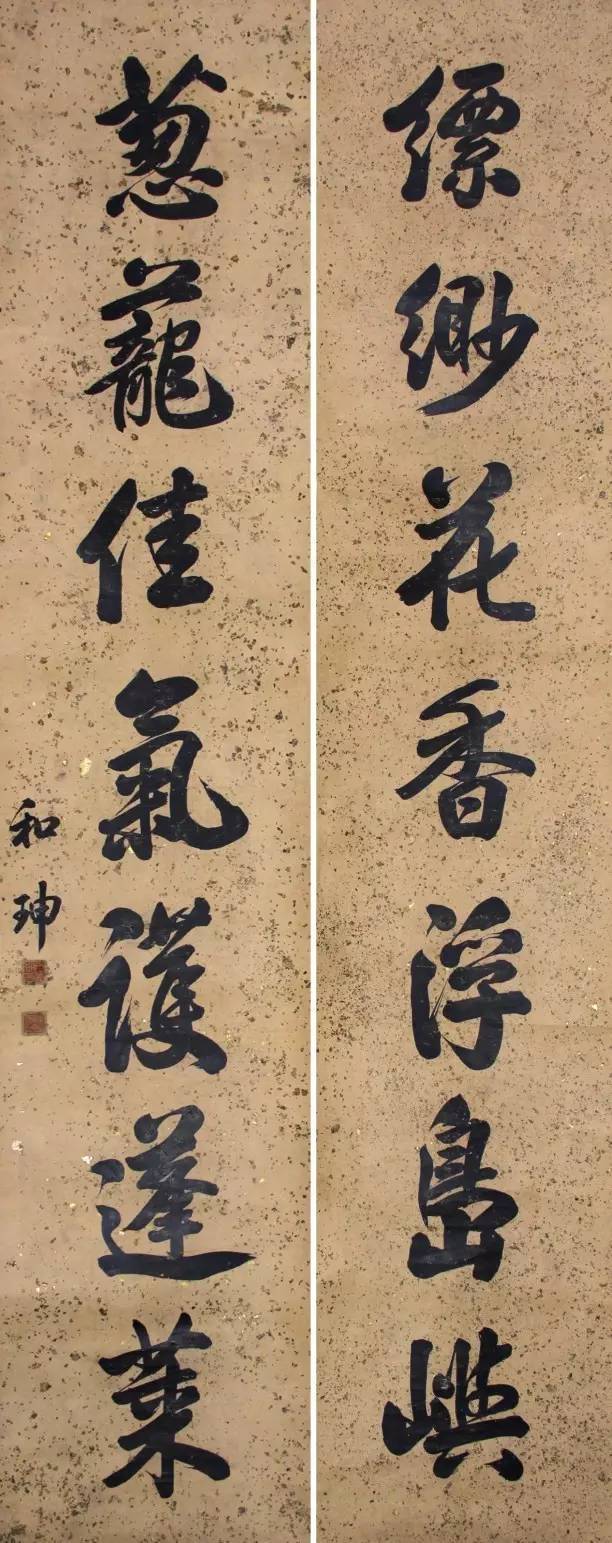 缥緲花香浮島嶼
葱蘢佳氣護蓬萊
和珅